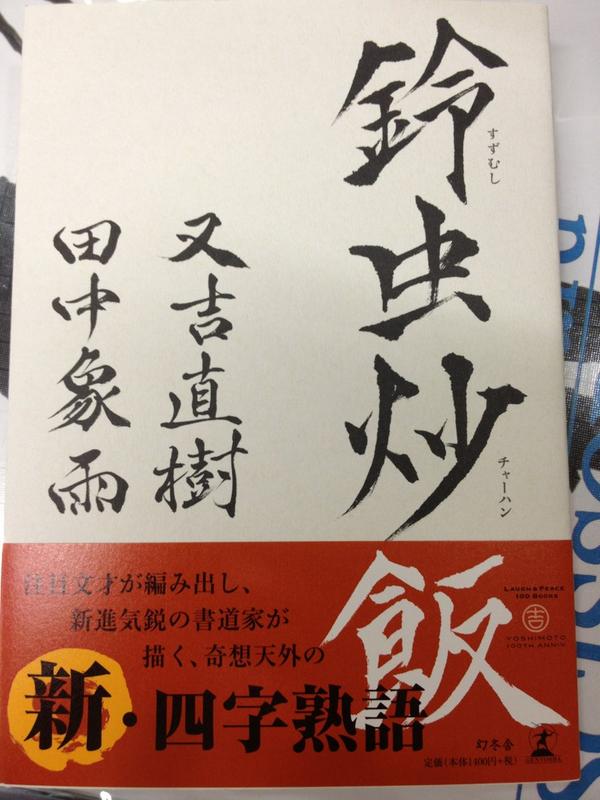 鈴虫炒飯
すずむし
チャーハン
又吉直樹
田中象雨
注目文才が編み出し、
新進気鋭の書道家が
描く、奇想天外の
新・四字熟語
LAUGH & PEACE
100 BOOKS
吉
YOSHIMOTO
100TH ANNIV.
幻冬舎
定価(本体1400円+税)
GENTOSHA